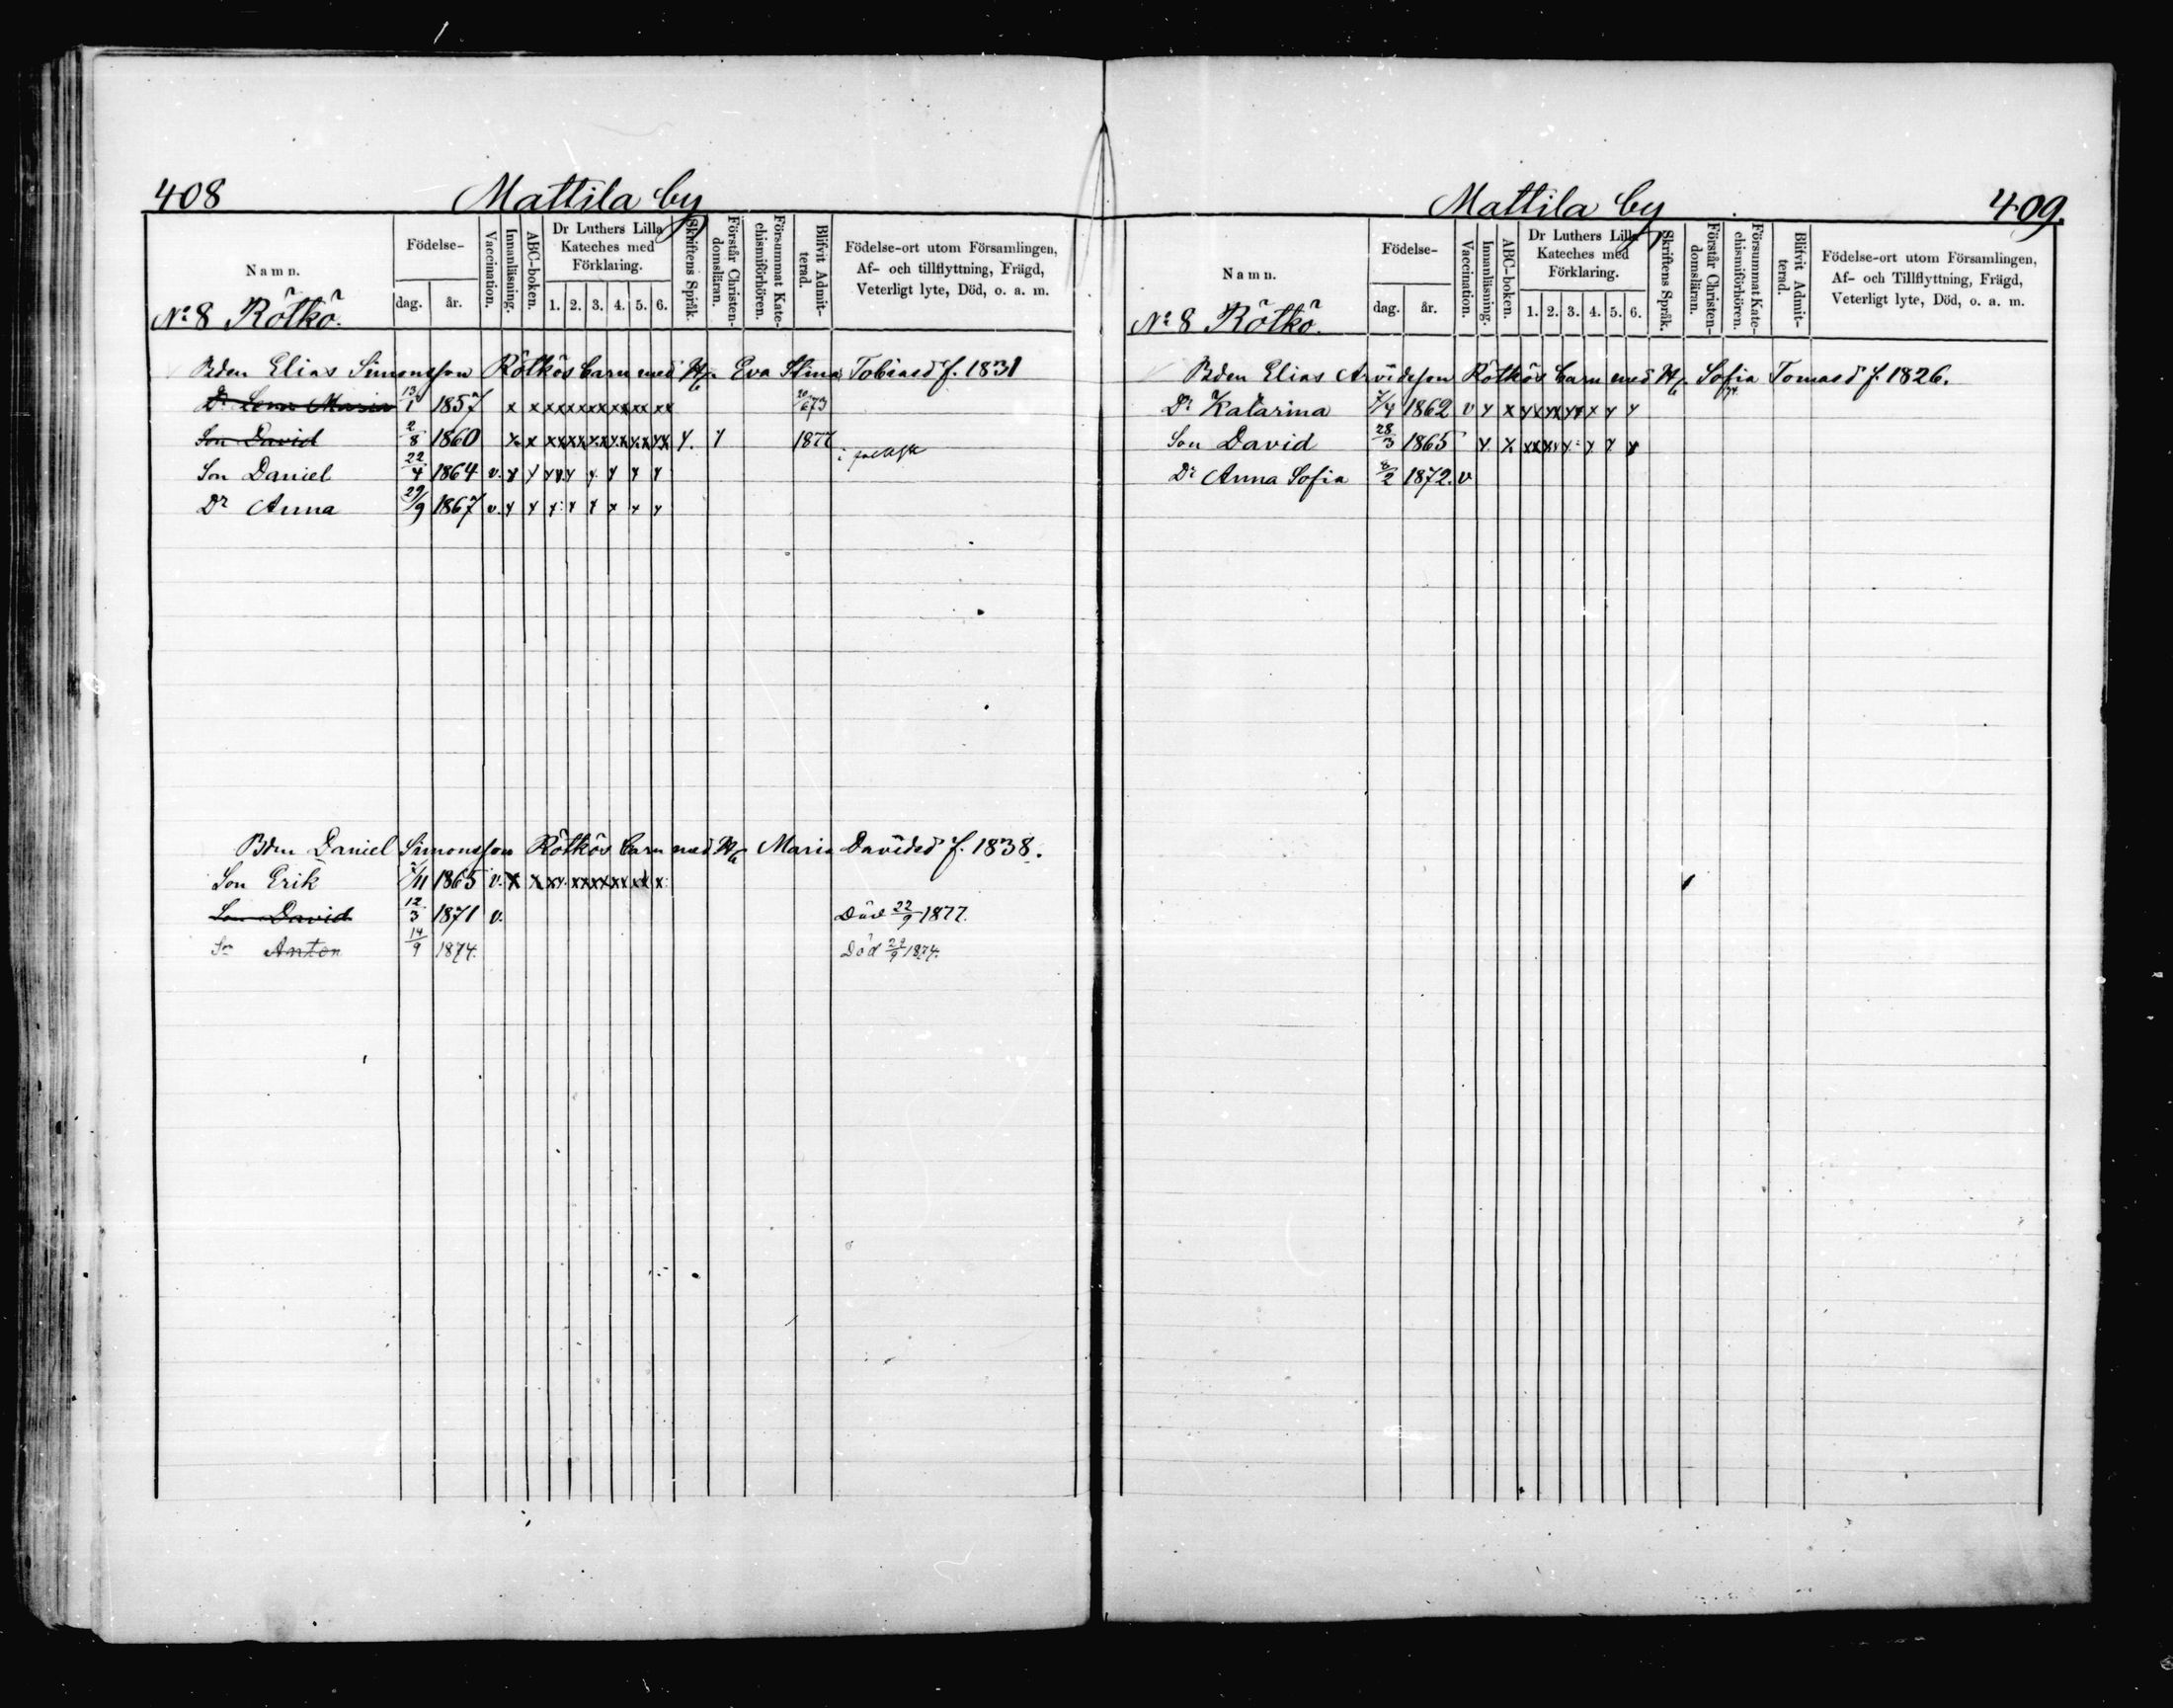 408 Mattila by
Namn. Födelse- dag. år. Vaccination. Innanläsning. ABC-boken. Dr Luthers Lilla Kateches med Förklaring. 1. 2. 3. 4. 5. 6. Skriftens Språk. Förstår Christendomsläran. Försummat Katechismiförhören. Blifvit Admitterad. Födelse-ort utom Församlingen, Af- och tillflyttning, Frägd, Veterligt lyte, Död, o. a. m.
No 8 Rötkö.
Bden Elias Simonsson Rötkös barn med H/u Eva Stina Tobiasd f. 1831
Dr Lena Maria 13/1 1857 x x xx xx xx xx xx xx 73
Son David 2/8 1860 x x xx xx xx xx xx xx y. y 1877
Son Daniel 22/4 1864 v. y y yy y y y y y
Dr Anna 29/9 1867 v. y y y y y x x y
Bden Daniel Simonsson Rötkös barn med H/u Maria Davidsd f. 1838.
Son Erik /11 1865 v. x x xx xx xx xx xx x
Son David 12/3 1871 v. Död 22/9 1877.
Sn Anton 14/9 1874. Död 22/9 1874.
Mattila by 409.
Namn. Födelse- dag. år. Vaccination. Innanläsning. ABC-boken. Dr Luthers Lilla Kateches med Förklaring. 1. 2. 3. 4. 5. 6. Skriftens Språk. Förstår Christendomsläran. Försummat Katechismiförhören. Blifvit Admitterad. Födelse-ort utom Församlingen, Af- och Tillflyttning, Frägd, Veterligt lyte, Död, o. a. m.
No 8 Rötkö.
Bden Elias Arvidsson Rötkös barn med H/u Sofia Tomasd f. 1826.
Dr Katarina 7/4 1862 v y x yx yx yx x y y
Son David 28/3 1865 y x xx xx y y y y
Dr Anna Sofia 8/2 1872. v